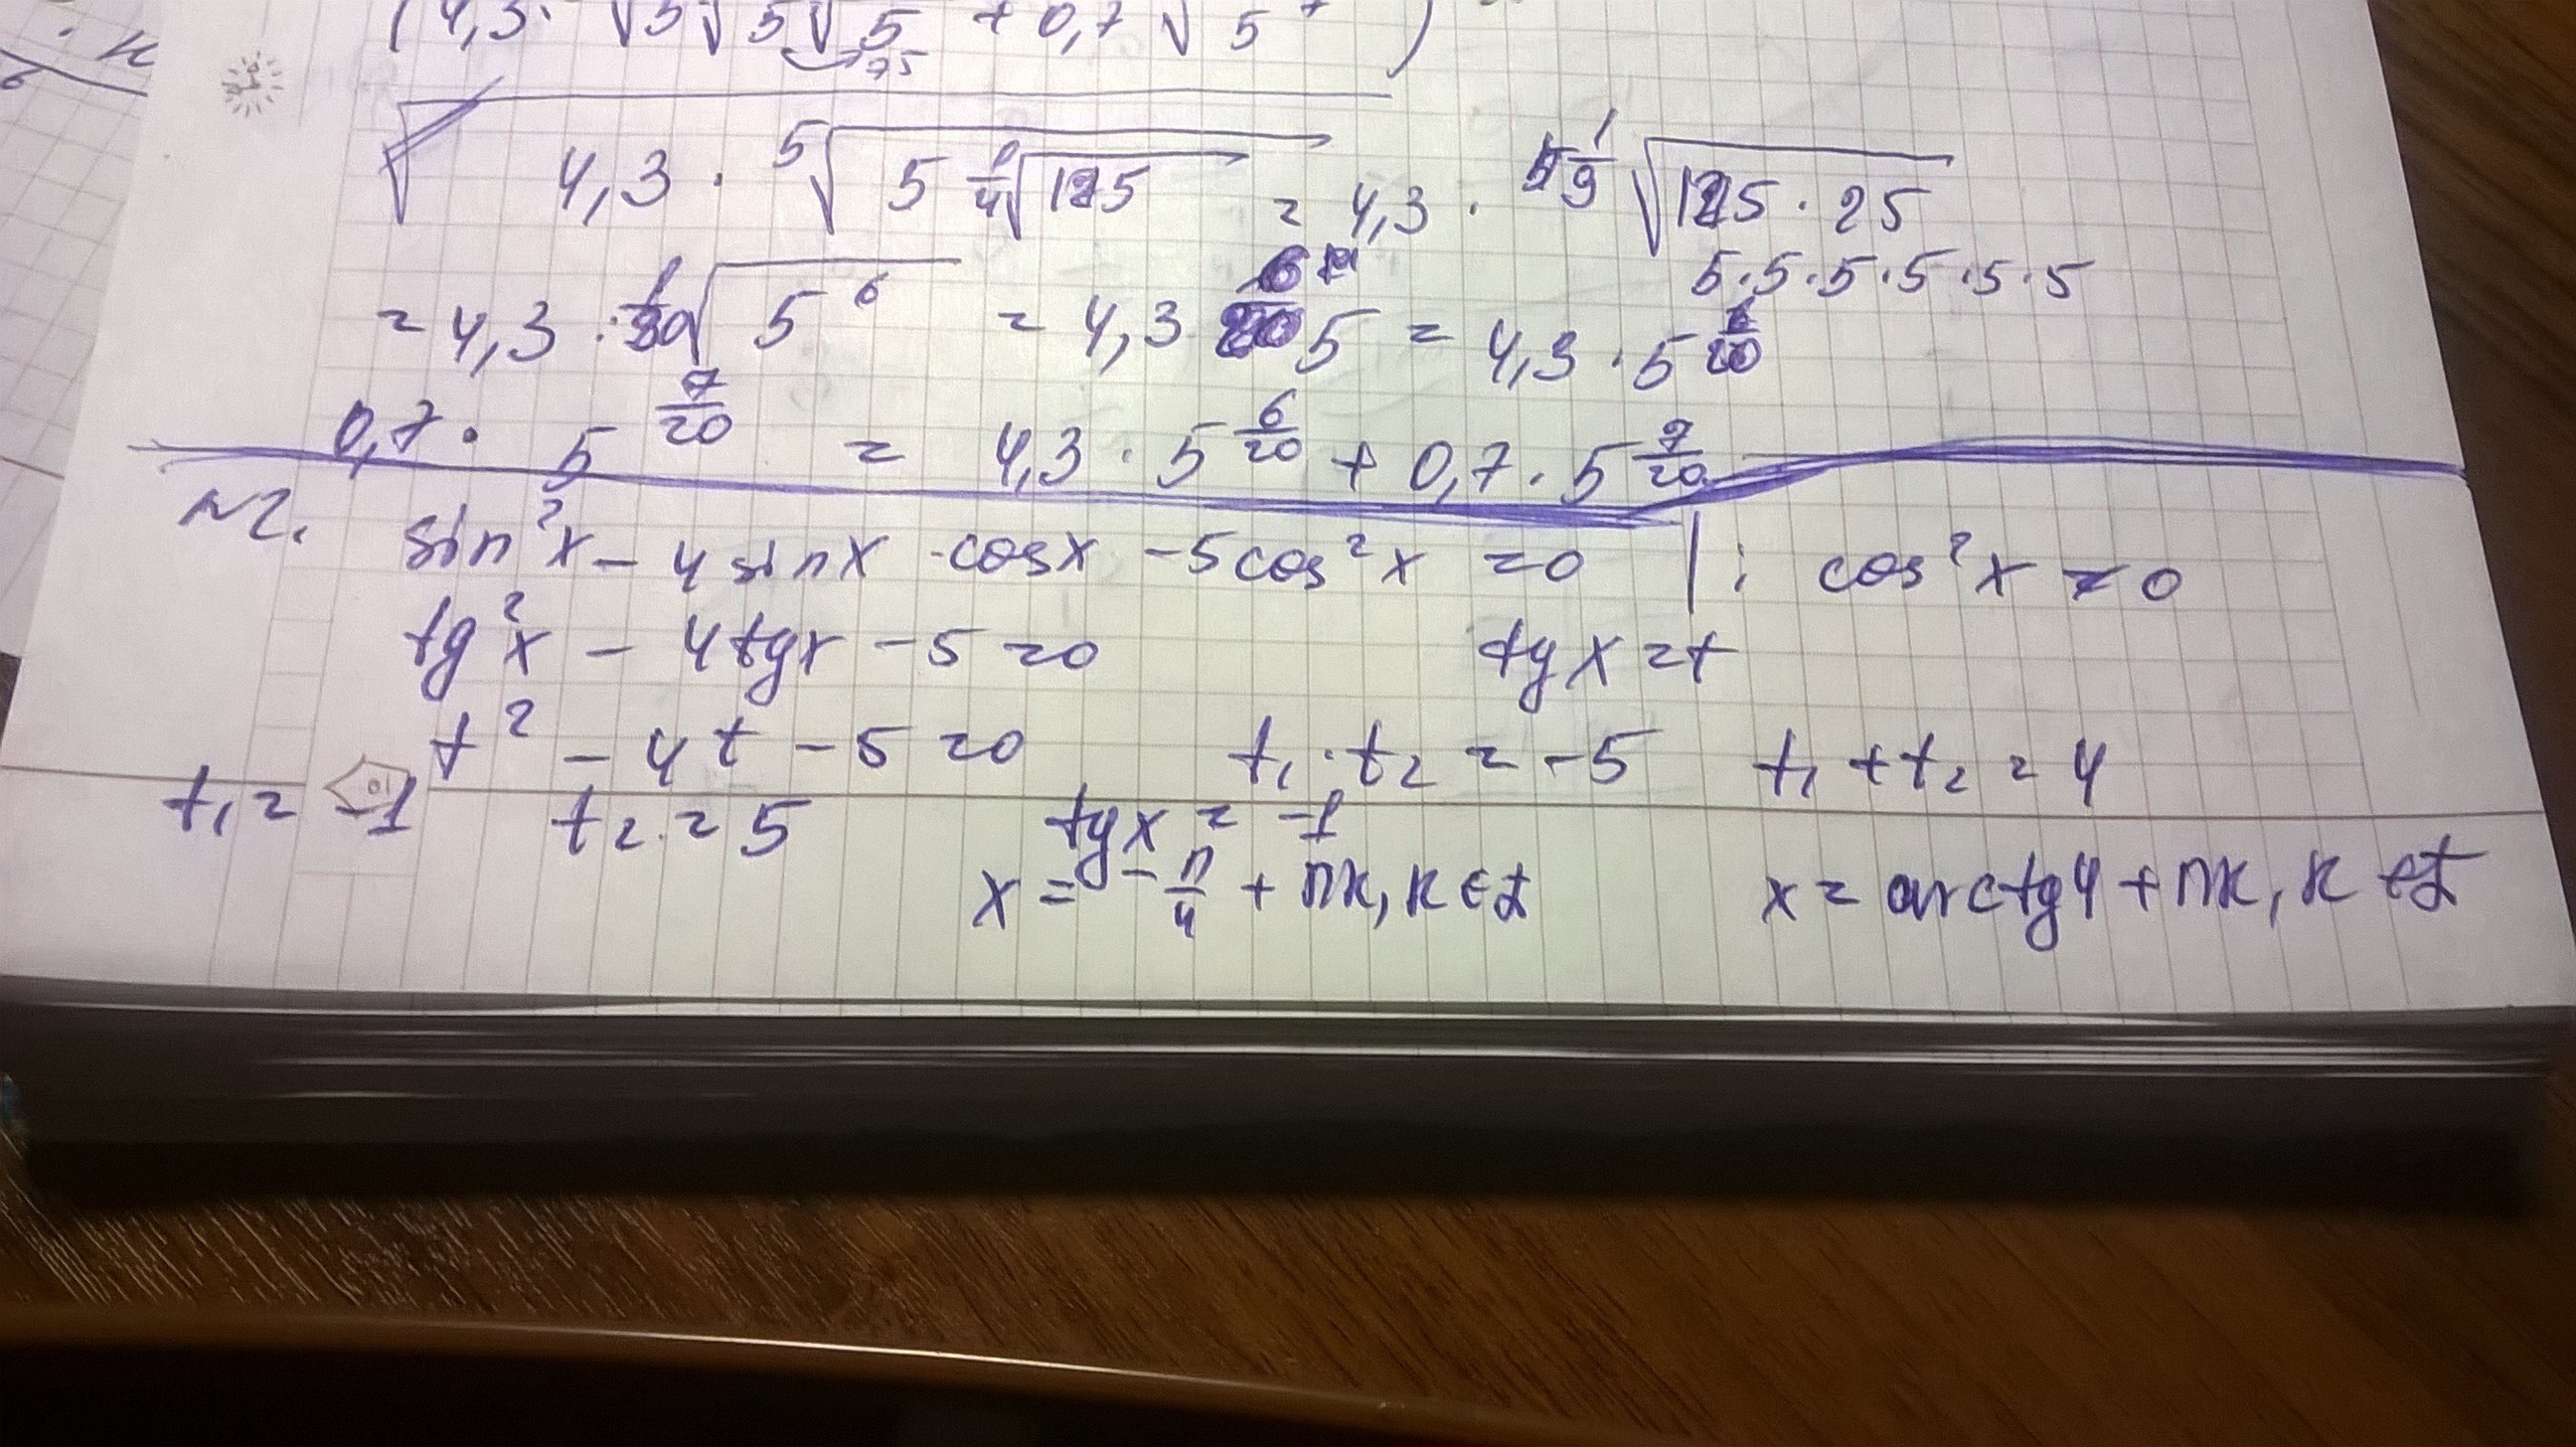 4,3 · √5√5√5 + 0,7 √5⁷ )
4,3 · ⁵√5 ⁴√125 = 4,3 · √125 · 25
5·5·5·5·5·5
= 4,3 · √5⁶ = 4,3 5 = 4,3 · 5^(6/20)
0,7 · 5^(7/20) = 4,3 · 5^(6/20) + 0,7 · 5^(7/20)
№2. sin²x – 4 sinx · cosx – 5cos²x = 0 | : cos²x ≠ 0
tg²x – 4tgx – 5 = 0 tgx = t
t² – 4t – 5 = 0 t₁ · t₂ = –5 t₁ + t₂ = 4
t₁ = –1 t₂ = 5 tgx = –1
x = –π/4 + πк, к ∈ Z x = arctg4 + πк, к ∈ Z